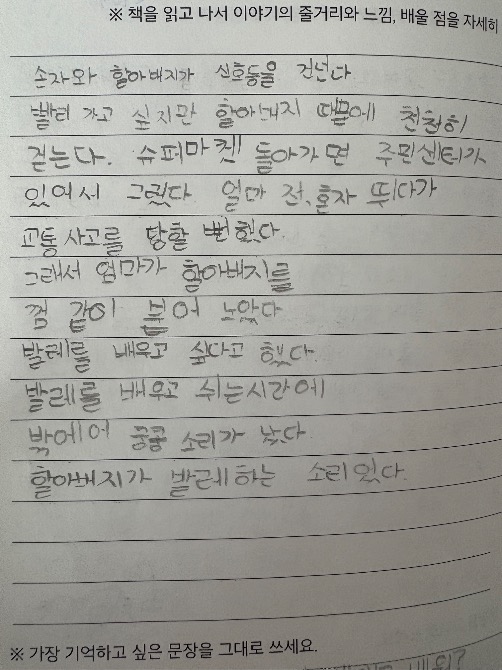 ※ 책을 읽고 나서 이야기의 줄거리와 느낌, 배울 점을 자세히
손자와 할아버지가 신호등을 건넌다
빨리 가고 싶지만 할아버지 때문에 천천히
걷는다. 슈퍼마켓 돌아가면 주민센터가
있어서 그랬다 얼마 전, 혼자 뛰다가
교통사고를 당할 뻔 했다.
그래서 엄마가 할아버지를
껌 같이 붙어 노았다
발레를 배우고 싶다고 했다.
발레를 배우고 쉬는시간에
밖에어 쿵쿵 소리가 났다
할아버지가 발레하는 소리 있다.
※ 가장 기억하고 싶은 문장을 그대로 쓰세요.